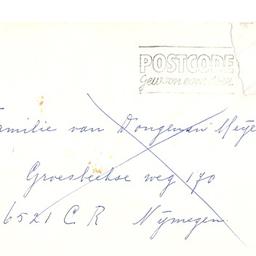 POSTCODE
Gewoon even doen
Familie van Dongen Meye
Groesbeekse weg 170
6521 C R Nijmegen.